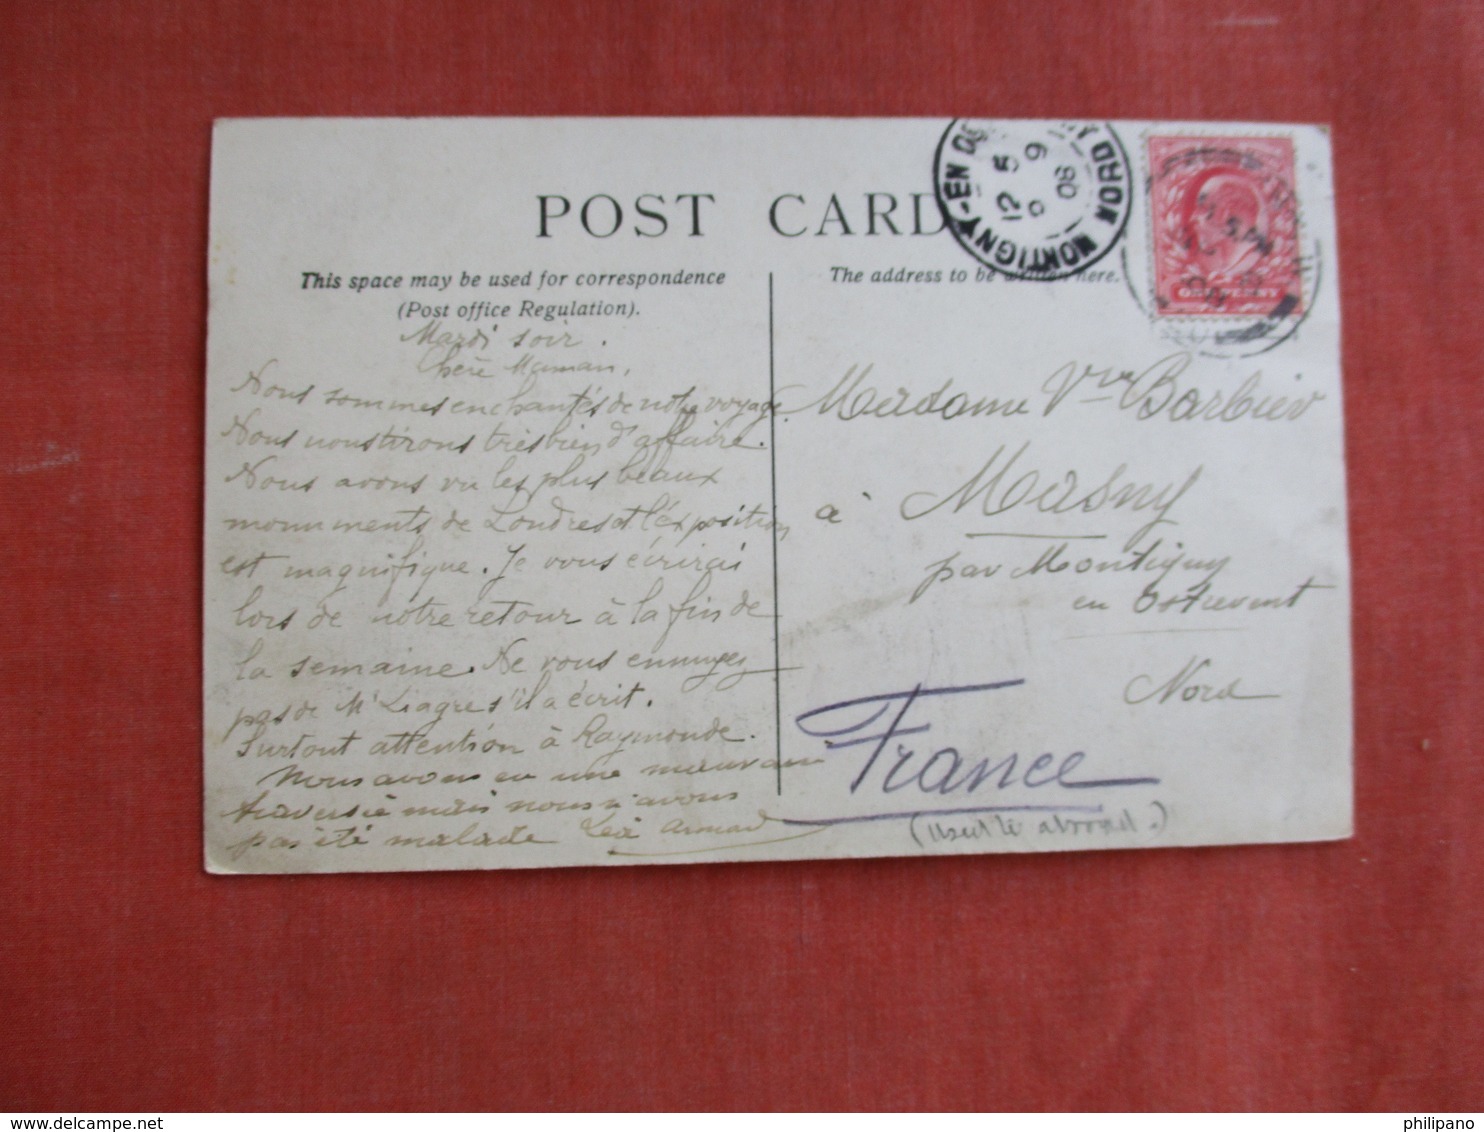 POST CARD
This space may be used for correspondence
(Post office Regulation).
The address to be written here.
Mardi soir.
Chère Maman,
Nous sommes enchantés de notre voyage.
Nous nous tirons très bien d'affaire.
Nous avons vu les plus beaux
monuments de Londres et l'exposition
est magnifique. Je vous écrirai
lors de notre retour à la fin de
la semaine. Ne vous ennuyez
pas de Mr Liagre s'il a écrit.
Surtout attention à Raymonde.
Nous avons eu une mauvaise
traversée mais nous n'avons
pas été malade Léa Armand
Madame Vve Barbier
à Masny
par Montigny
en Ostrevent
Nord
France
MONTIGNY-EN-OS
NORD
12 5
9
08
5. PM
ONE PENNY
delcampe.net
philipano